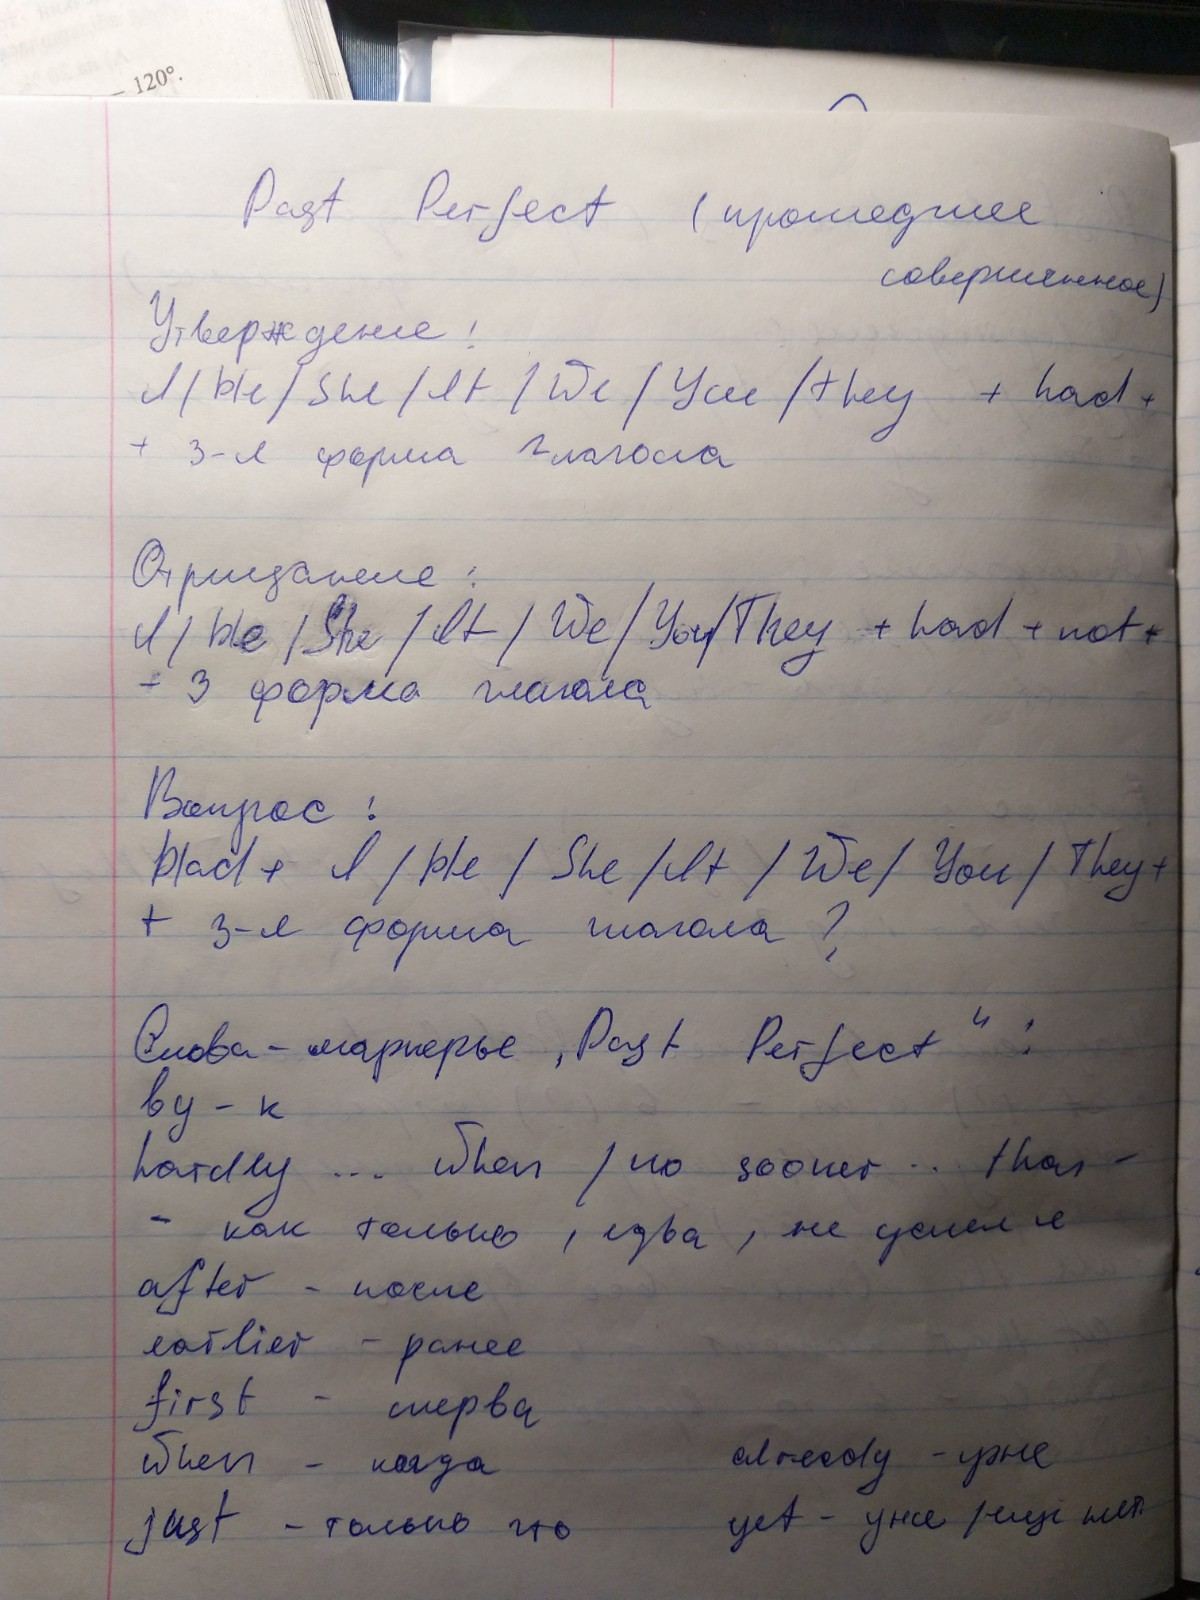 — 120°.
Past Perfect (прошедшее
совершенное)
Утверждение:
I / He / She / It / We / You / They + had +
+ 3-я форма глагола
Отрицание:
I / He / She / It / We / You / They + had + not +
+ 3 форма глагола
Вопрос:
Had + I / He / She / It / We / You / They +
+ 3-я форма глагола?
Слова-маркеры „Past Perfect“:
by - к
hardly ... when / no sooner .. than -
- как только, едва, не успел и
after - после
earlier - ранее
first - сперва
when - когда already - уже
just - только что yet - уже / ещё нет.